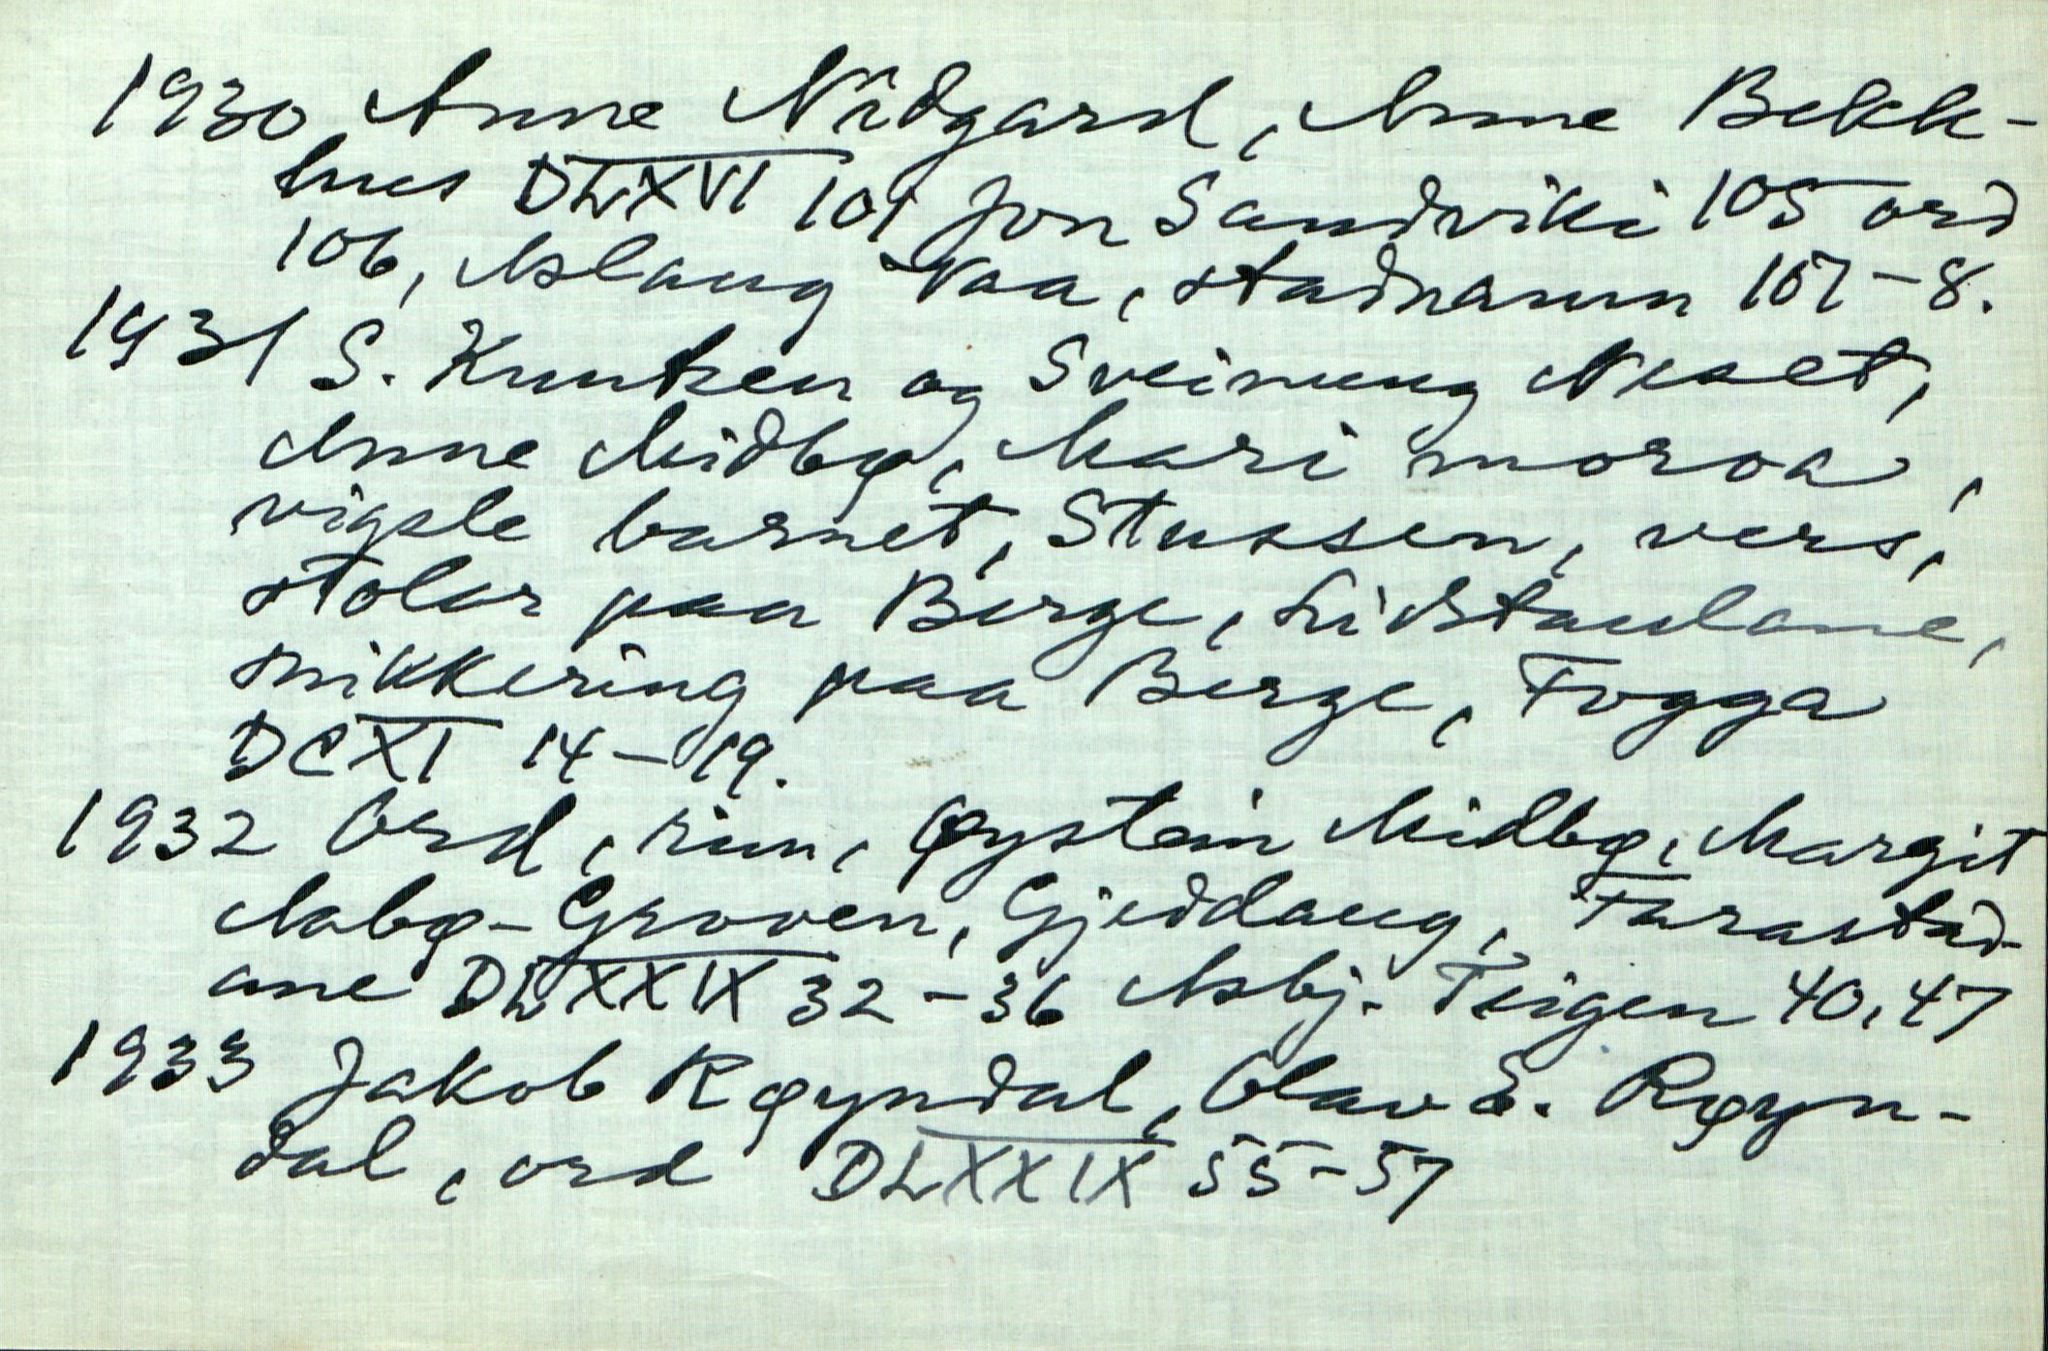 1930 Anne Nidgard, Anne Bekk-
hus DLXVI 101 Jon Sandviki 105 ord
106, Aslaug Vaa, stadnamn 107-8.
1931 S. Knutsen og Sveinung Neset,
Anne Midbø, Mari moroa,
vigsle barnet, Stussen, vers,
stoler paa Berge, Lidstaulane,
snikkering paa Berge, Togga
DCXI 14-19.
1932 Ord, rim, Øystein Midbø, Margit
Aabø-Groven, Gjeddaug, Tarastad-
ane DLXXIX 32-36 Asbj. Teigen 40, 47
1933 Jakob Røyndal, Olav E. Røyn-
dal, ord DLXXIX 55-57